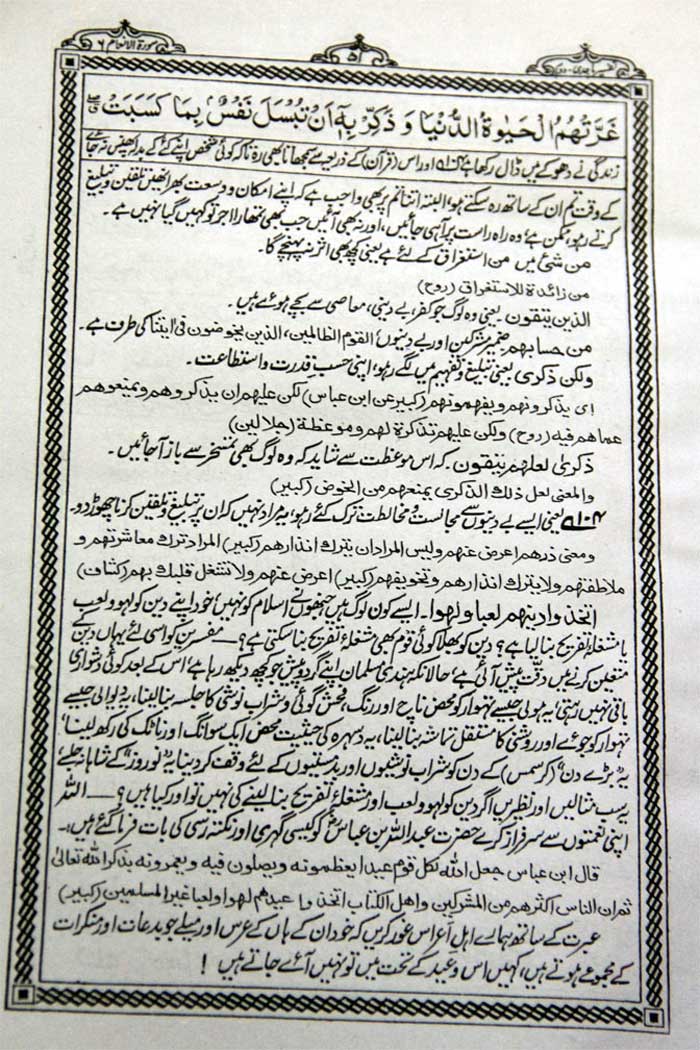 سورۃ الانعام ۶
تفسیر ماجدی - دوم
غَرَّتْهُمُ الْحَيٰوةُ الدُّنْيَا وَ ذَكِّرْ بِهٖٓ اَنْ تُبْسَلَ نَفْسٌۢ بِمَا كَسَبَتْ
زندگی نے دھوکے میں ڈال رکھا ہے اور اس (قرآن) کے ذریعہ سے سمجھاتا بھی رہ تاکہ کوئی شخص اپنے کئے کے بدلہ پھنس نہ جائے
کے وقت تم ان کے ساتھ رہ سکتے ہو، البتہ اتنا تم پر بھی واجب ہے کہ اپنے امکان و وسعت بھر انھیں تلقین و تبلیغ
کرتے رہو، ممکن ہے، وہ راہ راست پر آہی جائیں، اور نہ بھی آئیں جب بھی تمھارا اجر تو کہیں گیا نہیں ہے۔
من شیٔ میں من استغراق کے لئے ہے یعنی کچھ بھی اثر نہ پہنچے گا۔
من زائدة للاستغراق (روح)
الذین یتقون یعنی وہ لوگ جو کفر، بے دینی، معاصی سے بچے ہوئے ہیں۔
من حسابھم ضمیر مشرکین اور بے دینوں، القوم الظالمین، الذین یخوضون فی ایٰتنا کی طرف ہے۔
ولکن ذکریٰ یعنی تبلیغ و تفہیم میں لگے رہو، اپنی حسبِ قدرت و استطاعت۔
ای یذکرونهم ویفهمونهم (کبیر عن ابن عباس) لکن علیهم ان یذکروهم ویمنعوهم
عماهم فیه (روح) ولکن علیهم تذکرة لهم وموعظة (جلالین)
ذکریٰ لعلهم یتقون۔ کہ اس موعظت سے شاید کہ وہ لوگ بھی تمسخر سے باز آجائیں۔
والمعنی لعل ذلك الذکری یمنعهم من الخوض (کبیر)
۱۰۴ یعنی ایسے بے دینوں سے مجالست و مخالطت ترک کئے رہو، یہ مراد نہیں کہ ان پر تبلیغ و تلقین کرنا چھوڑ دو۔
ومعنی ذرهم اعرض عنهم ولیس المراد ان یترك انذارهم (کبیر) المراد ترك معاشرتهم و
ملاطفتهم ولا یترك انذارهم وتخویفهم (کبیر) اعرض عنهم ولا تشغل قلبك بهم (کشاف)
اتخذوا دینهم لعبا ولهوا۔ ایسے کون لوگ ہیں جنھوں نے اسلام کو نہیں، خود اپنے دین کو لہو و لعب
یا مشغلۂ تفریح بنا لیا ہے؟ دین کو بھلا کوئی قوم بھی مشغلۂ تفریح بنا سکتی ہے؟ — مفسرین کو اسی لئے یہاں دین کے
متعین کرنے میں دقّت پیش آئی ہے، حالانکہ ہندی مسلمان اپنے گرد و پیش جو کچھ دیکھ رہا ہے، اس کے بعد کوئی دشواری
باقی نہیں رہتی، یہ ہولی جیسے تہوار کو محض ناچ اور رنگ، فحش گوئی و شراب نوشی کا جلسہ بنا لینا، یہ دیوالی جیسے
تہوار کو جوئے اور روشنی کا مستقل تماشہ بنا لینا، یہ دسہرہ کی حیثیت محض ایک سوانگ اور ناٹک کی رکھ لینا،
یہ "بڑے دن" (کرسمس) کے دن کو شراب نوشیوں اور بدمستیوں کے لئے وقف کر دینا یہ "نوروز" کے شاہانہ جلسے،
یہ سب مثالیں اور نظیریں اگر دین کو لہو و لعب اور مشغلۂ تفریح بنا لینے کی نہیں تو اور کیا ہیں؟ — اللہ
اپنی نعمتوں سے سرفراز کرے حضرت عبداللہ بن عباسؓ کو کیسی گہری اور نکتہ رسی کی بات فرما گئے ہیں:۔
قال ابن عباس جعل الله لکل قوم عیدا یعظمونه ویصلون فیه ویعمرونه بذکر الله تعالیٰ
ثم ان الناس اکثرهم من المشرکین واهل الکتاب اتخذوا عیدهم لهوا ولعبا غیر المسلمین (کبیر)
عبرت کے ساتھ ہمارے اہل اعراس غور کریں کہ خود ان کے ہاں کے عرس اور میلے جو بدعات اور منکرات
کے مجموعے ہوتے ہیں، کہیں اس وعید کے تحت میں تو نہیں آئے جاتے ہیں!